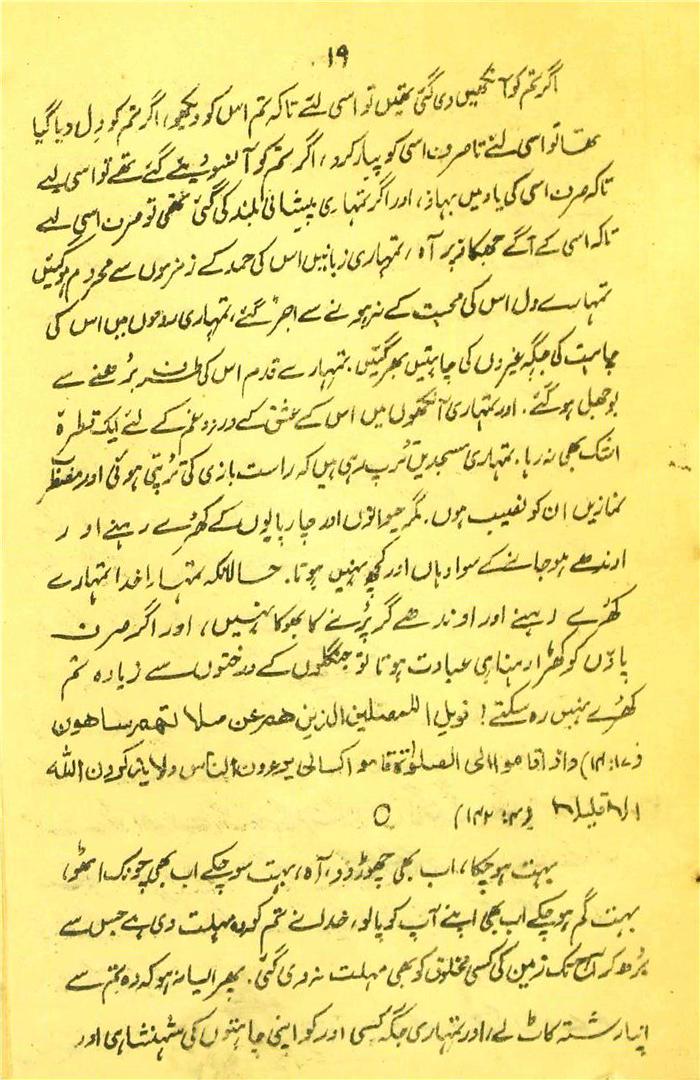 ۱۹
اگر تم کو آنکھیں دی گئی تھیں تو اسی لئے تاکہ تم اس کو دیکھو، اگر تم کو دل دیا گیا
تھا تو اسی لئے تا صرف اسی کو پیار کرو، اگر تم کو آنسو دئیے گئے تھے تو اسی لیے
تاکہ صرف اسی کی یاد میں بہاؤ، اور اگر تمہاری پیشانی بلند کی گئی تھی تو صرف اسی لیے
تاکہ اسی کے آگے جھکاؤ پر آہ، تمہاری زبانیں اس کی حمد کے زمزموں سے محروم ہوگئیں
تمہارے دل اس کی محبت کے نہ ہونے سے اجڑ گئے، تمہاری روحوں میں اس کی
چاہت کی جگہ غیروں کی چاہتیں بھر گئیں. تمہارے قدم اس کی طرف بڑھنے سے
بوجھل ہوگئے. اور تمہاری آنکھوں میں اس کے عشق کے درد و غم کے لئے ایک قطرہ
اشک بھی نہ رہا. تمہاری مسجدیں تڑپ رہی ہیں کہ راست بازی کی تڑپتی ہوئی اور مضطر
نمازیں ان کو نصیب ہوں. مگر حیوانوں اور چارپایوں کے کھڑے رہنے اور
اوندھے ہوجانے کے سوا وہاں اور کچھ نہیں ہوتا. حالانکہ تمہارا خدا تمہارے
کھڑے رہنے اور اوندھے گر پڑنے کا بھوکا نہیں، اور اگر صرف
پاؤں کو کھڑا رہنا ہی عبادت ہوتا تو جنگلوں کے درختوں سے زیادہ تم
کھڑے نہیں رہ سکتے! فویل للمصلین الذین ھم عن صلاتھم ساھون
واذا قاموا الی الصلوٰۃ قاموا کسالی یرءون الناس ولا یذکرون اللہ
الا قلیلا (۴: ۱۴۲)
بہت ہوچکا، اب بھی چھوڑ دو، آہ، بہت سو چکے اب بھی چونک اٹھو،
بہت گم ہوچکے اب بھی اپنے آپ کو پا لو، خدا نے تم کو وہ مہلت دی ہے جس سے
بڑھ کر آج تک زمین کی کسی مخلوق کو بھی مہلت نہ دی گئی. پھر ایسا نہ ہو کہ وہ تم سے
اپنا رشتہ کاٹ لے، اور تمہاری جگہ کسی اور کو اپنی چاہتوں کی شہنشاہی اور